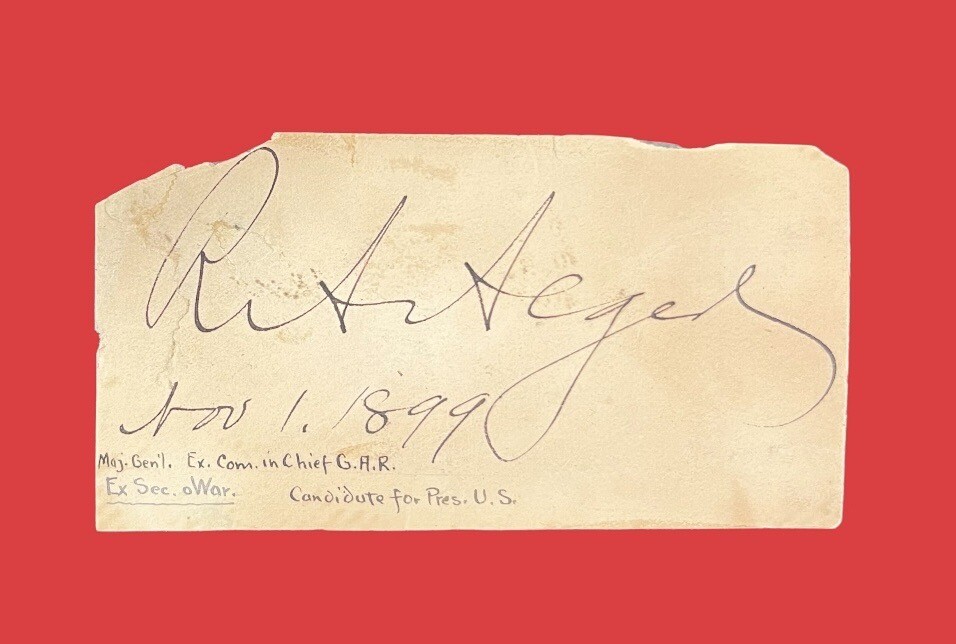 R A Alger
Nov 1. 1899
Maj. Gen'l. Ex. Com. in Chief G.A.R.
Ex Sec. o War. Candidate for Pres. U.S.